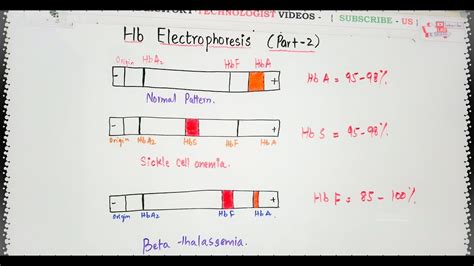 LABORATORY TECHNOLOGIST VIDEOS - { SUBSCRIBE - US }
Hb Electrophoresis (Part-2)
Origin HbA2 HbF HbA
- +
Normal Pattern.
Hb A = 95-98%
- +
Origin HbA2 HbS HbF HbA
Sickle cell anemia.
Hb S = 95-98%
- +
Origin HbA2 HbF HbA
Beta -thalassemia.
Hb F = 85 - 100%